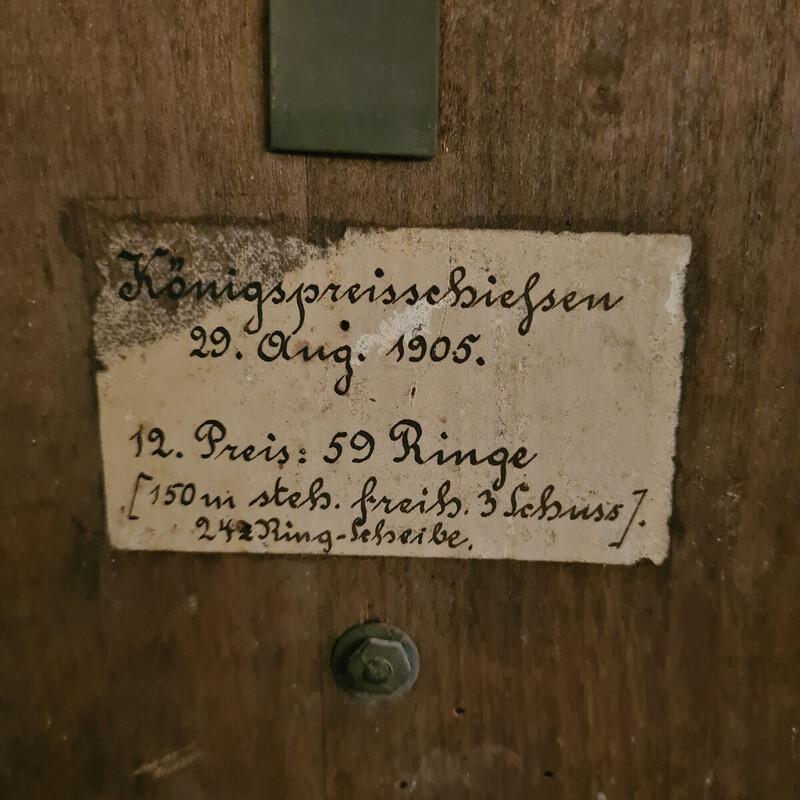 Königspreisschießen
29. Aug. 1905.
12. Preis: 59 Ringe
[150 m steh. freih. 3 Schuss].
Ring-Scheibe.